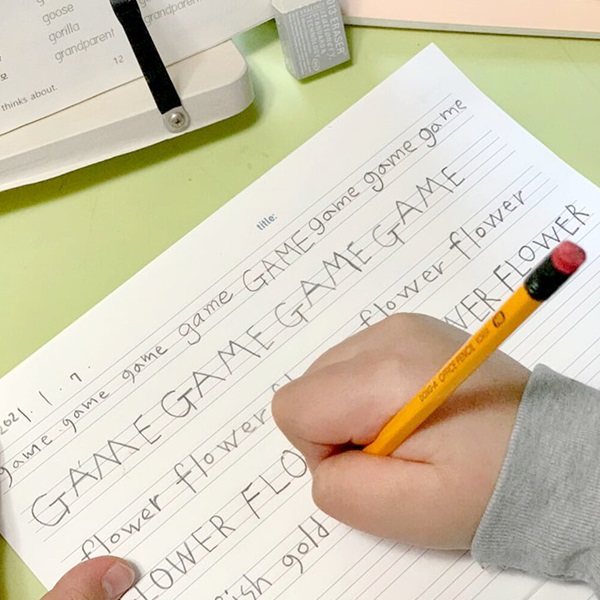 goose
gorilla
grandparent
12
thinks about.
title:
2021. 1. 7.
game game game game GAME game game game
GAME GAME GAME GAME
flower flower flower flower
LOWER FLO WER FLOWER
ish gold